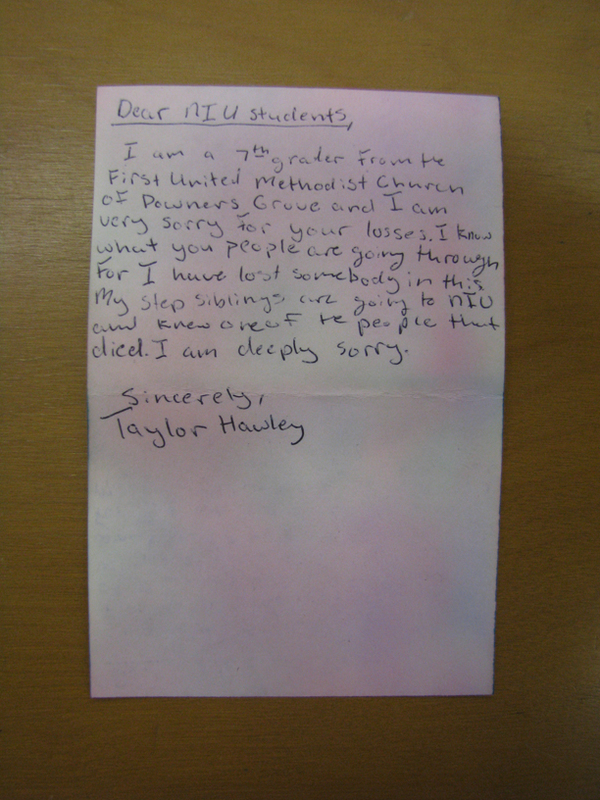 Dear NIU students,
I am a 7th grader from the
First United Methodist Church
of Downers Grove and I am
very sorry for your losses. I know
what you people are going through
for I have lost somebody in this
My step siblings are going to NIU
and knew one of te people that
died. I am deeply sorry.
Sincerely,
Taylor Hawley